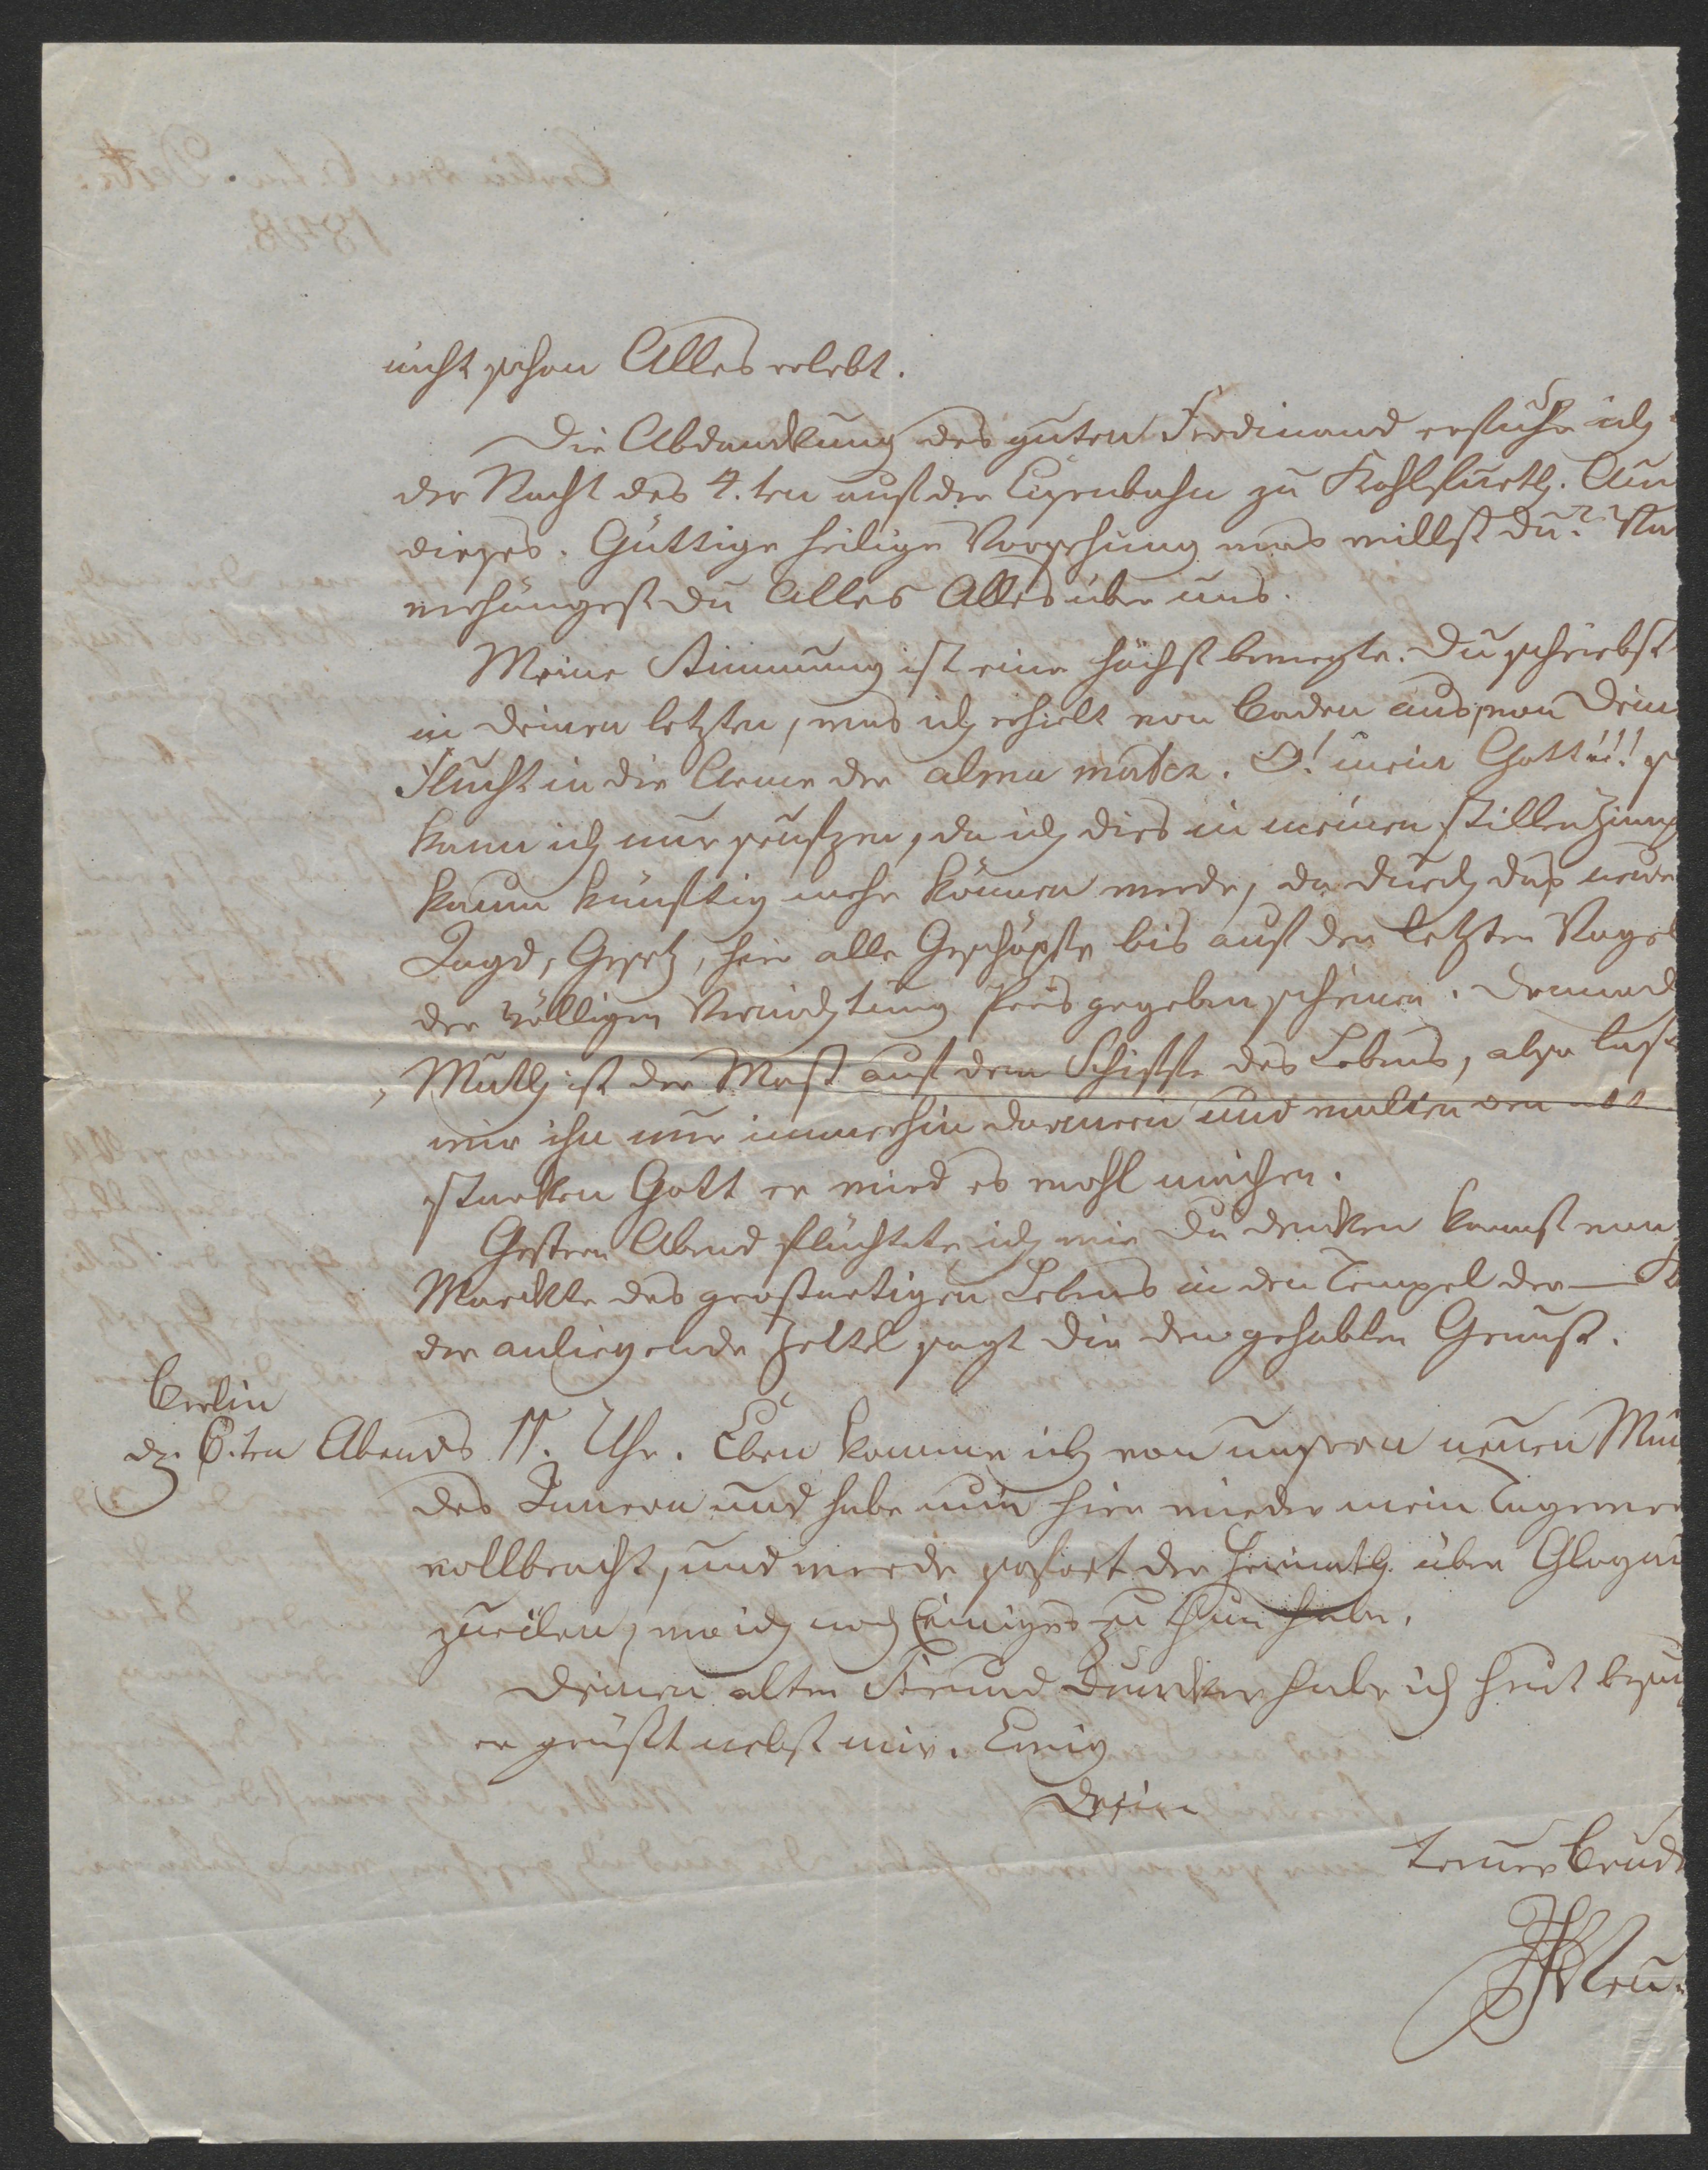 nicht schon Alles erlebt.
Die Abdankung des guten Ferdinand erfuhr ich
der Nacht des 4.ten auf der Eisenbahn zu Kohlfurth. Au
dieses. Güttige heilige Vorsehung was willst du?
verhängest du Alles Alles über uns.
Meine Stimmung ist eine höchst bewegte. Du schriebst
in deinen letzten, was ich erhielt von Baden aus, von Dein
Flucht in die Arme der alma mater. O! mein Gott!!! s
kann ich nur seufzen, da ich dies in meinen stillen
kaum künftig mehr können werde, da durch das neue
Jagd, Gesetz, hier alle Geschöpfe bis auf den letzten Vogel
der völligen Vernichtung Preis gegeben scheinen.
Muth ist der Mast auf dem Schiffe des Lebens, also
wir ihn nur immerhin und walten den
starken Gott er wird es wohl machen.
Gestern Abend flüchtete ich wie Du denken kannst vom
Markte des großartigen Lebens in den Tempel der —
der anliegende Zettel sagt Dir den gehabten Genuß.
Berlin
d. 6.ten Abends 11. Uhr. Eben komme ich von unseren neuen Min
des Innern und habe nun hier wieder mein Tagewer
vollbracht, und werde sofort der Heimath über Glogau
zueilen, wo ich noch Einiges zu thun habe.
Deinen alten Freund Duncker habe ich heut besuch
er grüßt nebst mir. Ewig
Dein
treuer Brude